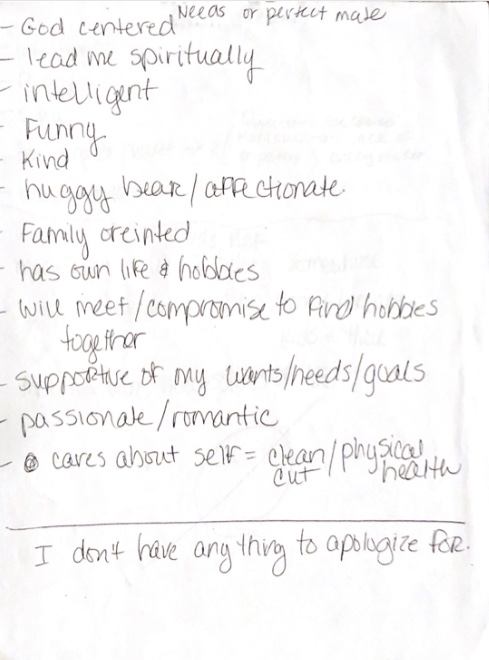 Needs or perfect mate
- God centered
- lead me spiritually
- intelligent
- Funny
- Kind
- huggy bear/affectionate
- Family oreinted
- has own life & hobbies
- will meet/compromise to find hobbies
together
- supportive of my wants/needs/goals
- passionate/romantic
- cares about self = clean/physical
cut health
I don't have anything to apologize for.